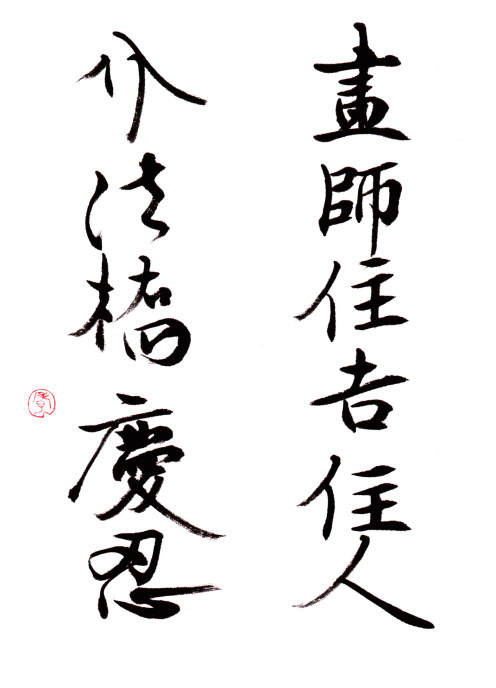 畫師住吉住人
介法橋慶忍